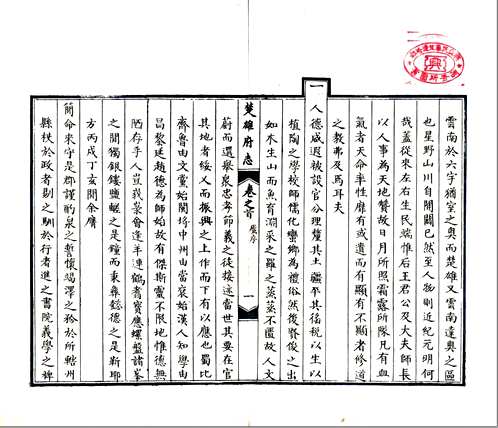 雲南於六字猶室之奧而楚雄又雲南達奧之區
也星野山川自開闢已然至人物則近紀元明何
哉蓋從來左右生民端惟后王君公及大夫師長
以人事為天地贊故日月所照霜露所隊凡有血
氣者天命率性靡有或遺而有顯有不顯者修道
之教弗及焉耳夫
一人德威遐被設官分理釐其土疆平其徭稅以生以
植陶之學校師儒化蠻鄉為禮俗然後賢俊之出
如木生山而魚育淵采之羅之蒸蒸不匱故人文
楚雄府志 卷之首 舊序 一
蔚而選舉泉忠孝節義之徒接迹當世其要在官
其地者綏人而振興之上作而下有以應也蜀比
齊魯由文黨始閩將中州由常袞始漢人知學由
昌黎廷趙德為師始故有傑斯靈不限地惟德無
陋存乎人豈我蒙舍達羊連應螺盤諸峯
之間獨銀鏤鹽艖之是鐘而秉彞懿德之是靳耶
方丙戌丁亥間余膺
簡命來守是郡酌泉之誓懷瑞澤之矜於所轄州
縣扶於政者剔之馴於行者進之書院義學之裨